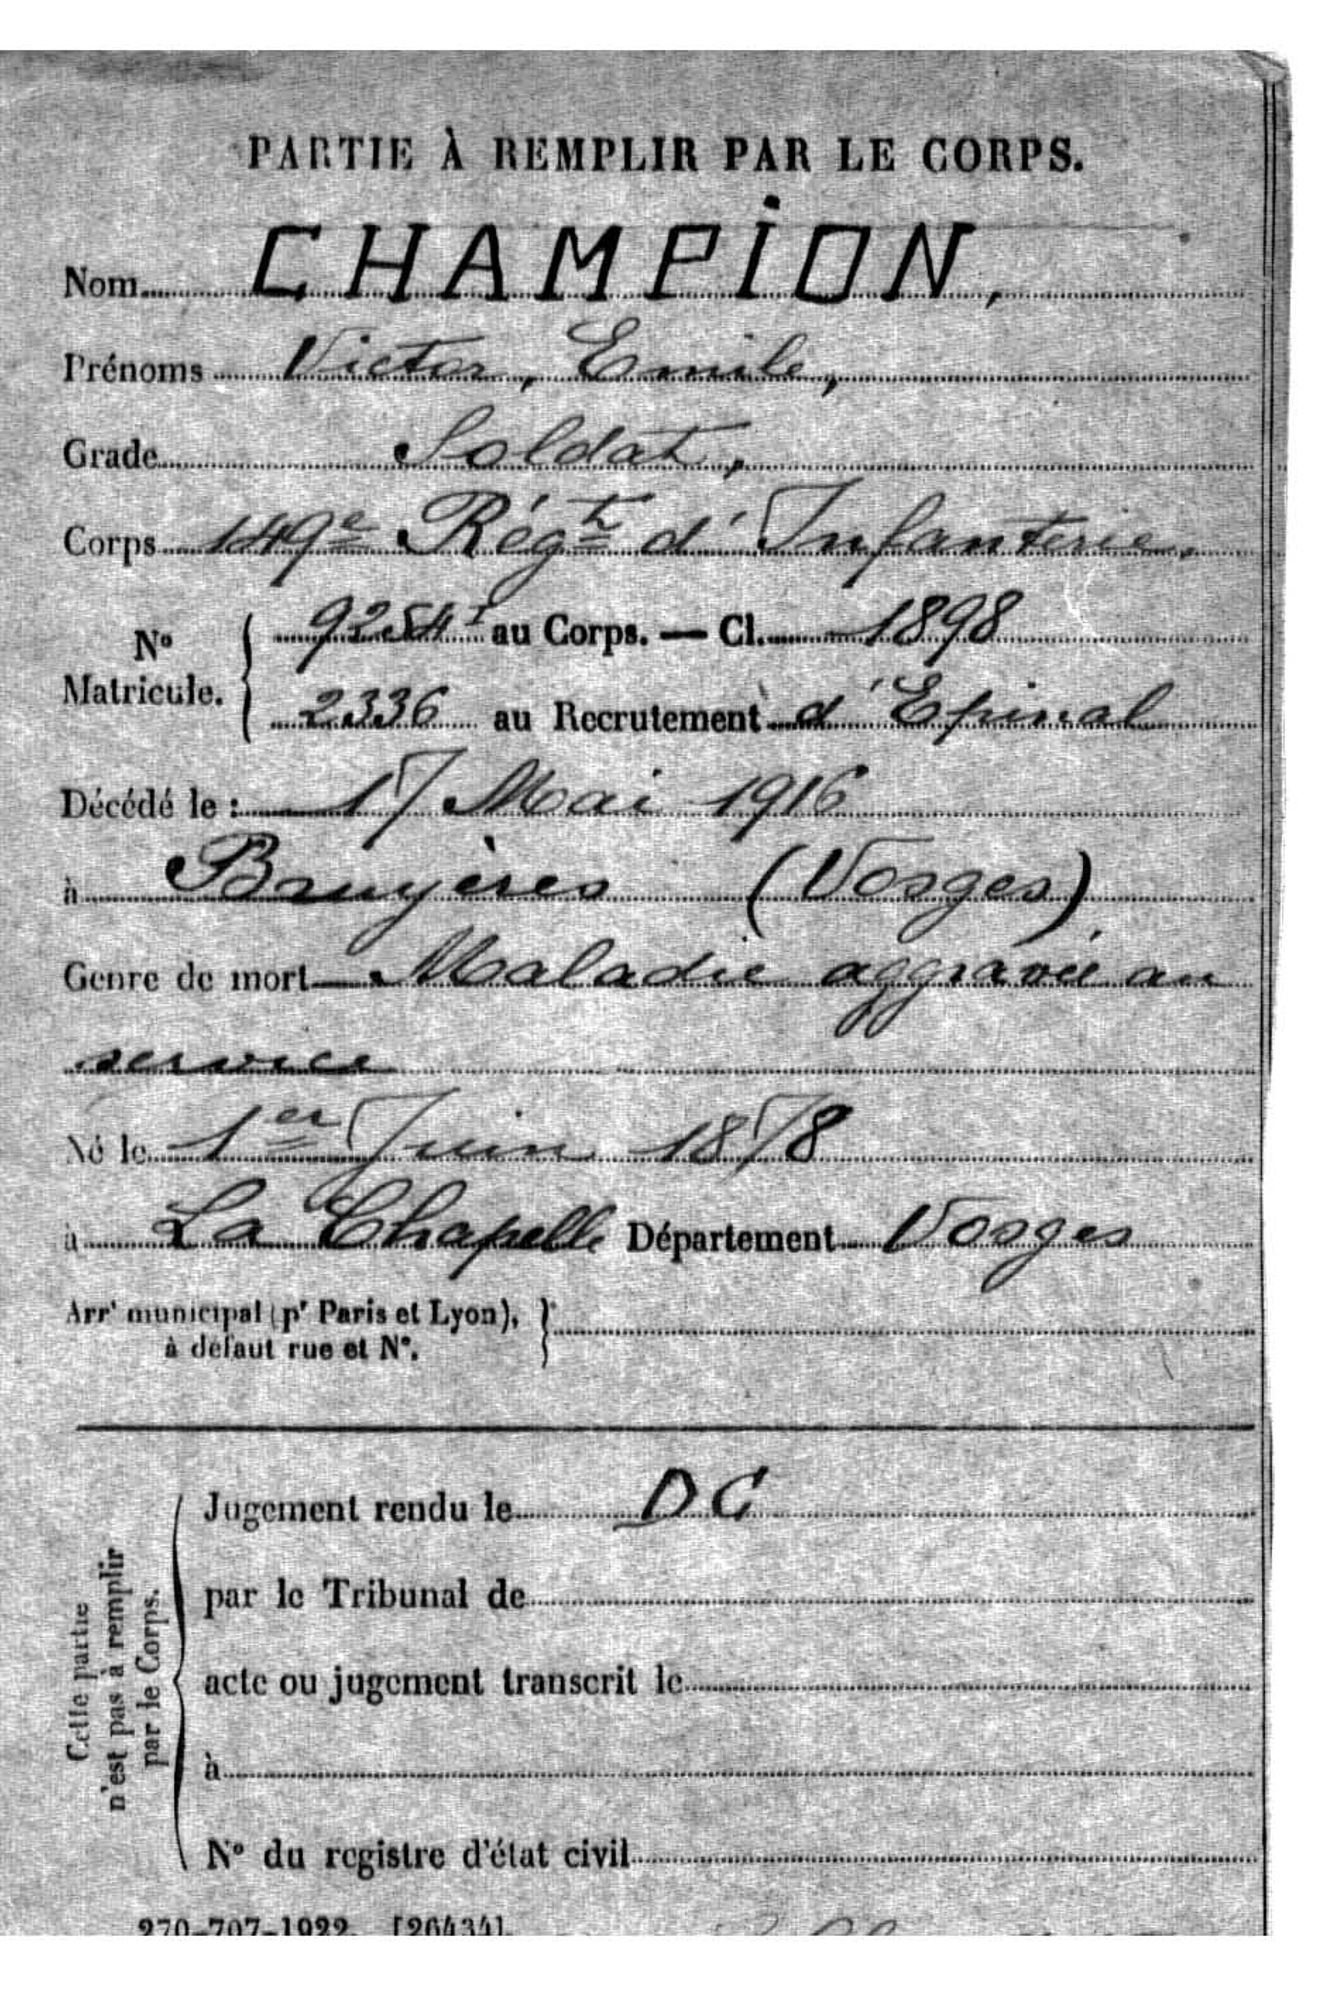 PARTIE À REMPLIR PAR LE CORPS.
Nom CHAMPION,
Prénoms Victor, Emile,
Grade Soldat,
Corps 149e Régt d'Infanterie.
No Matricule. { 9254 I au Corps. — Cl. 1898
2336 au Recrutement d'Epinal
Décédé le : 17 Mai 1916
à Bruyères (Vosges)
Genre de mort Maladie aggravée au
service
Né le 1er Juin 1878
à La Chapelle Département Vosges
Arrt municipal (pr Paris et Lyon), }
à défaut rue et N°.
Cette partie
n'est pas à remplir
par le Corps.
Jugement rendu le DC
par le Tribunal de
acte ou jugement transcrit le
à
N° du registre d'état civil
270-707-1922. [26434].